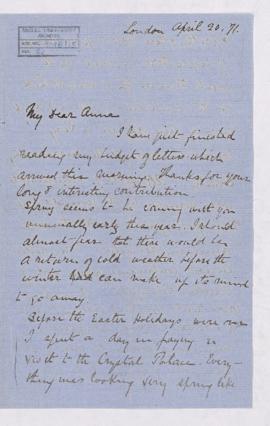 London April 20, 71.
My Dear Anna
I have just finished
reading my budget of letters which
arrived this morning. Thanks for your
long & interesting contribution
Spring seems to be coming with you
unusually early this year. I should
almost fear that there would be
a return of cold weather before the
winter can make up its mind
to go away.
Before the Easter Holidays were over
I spent a day in paying a
visit to the Crystal Palace. Every-
thing was looking very spring like